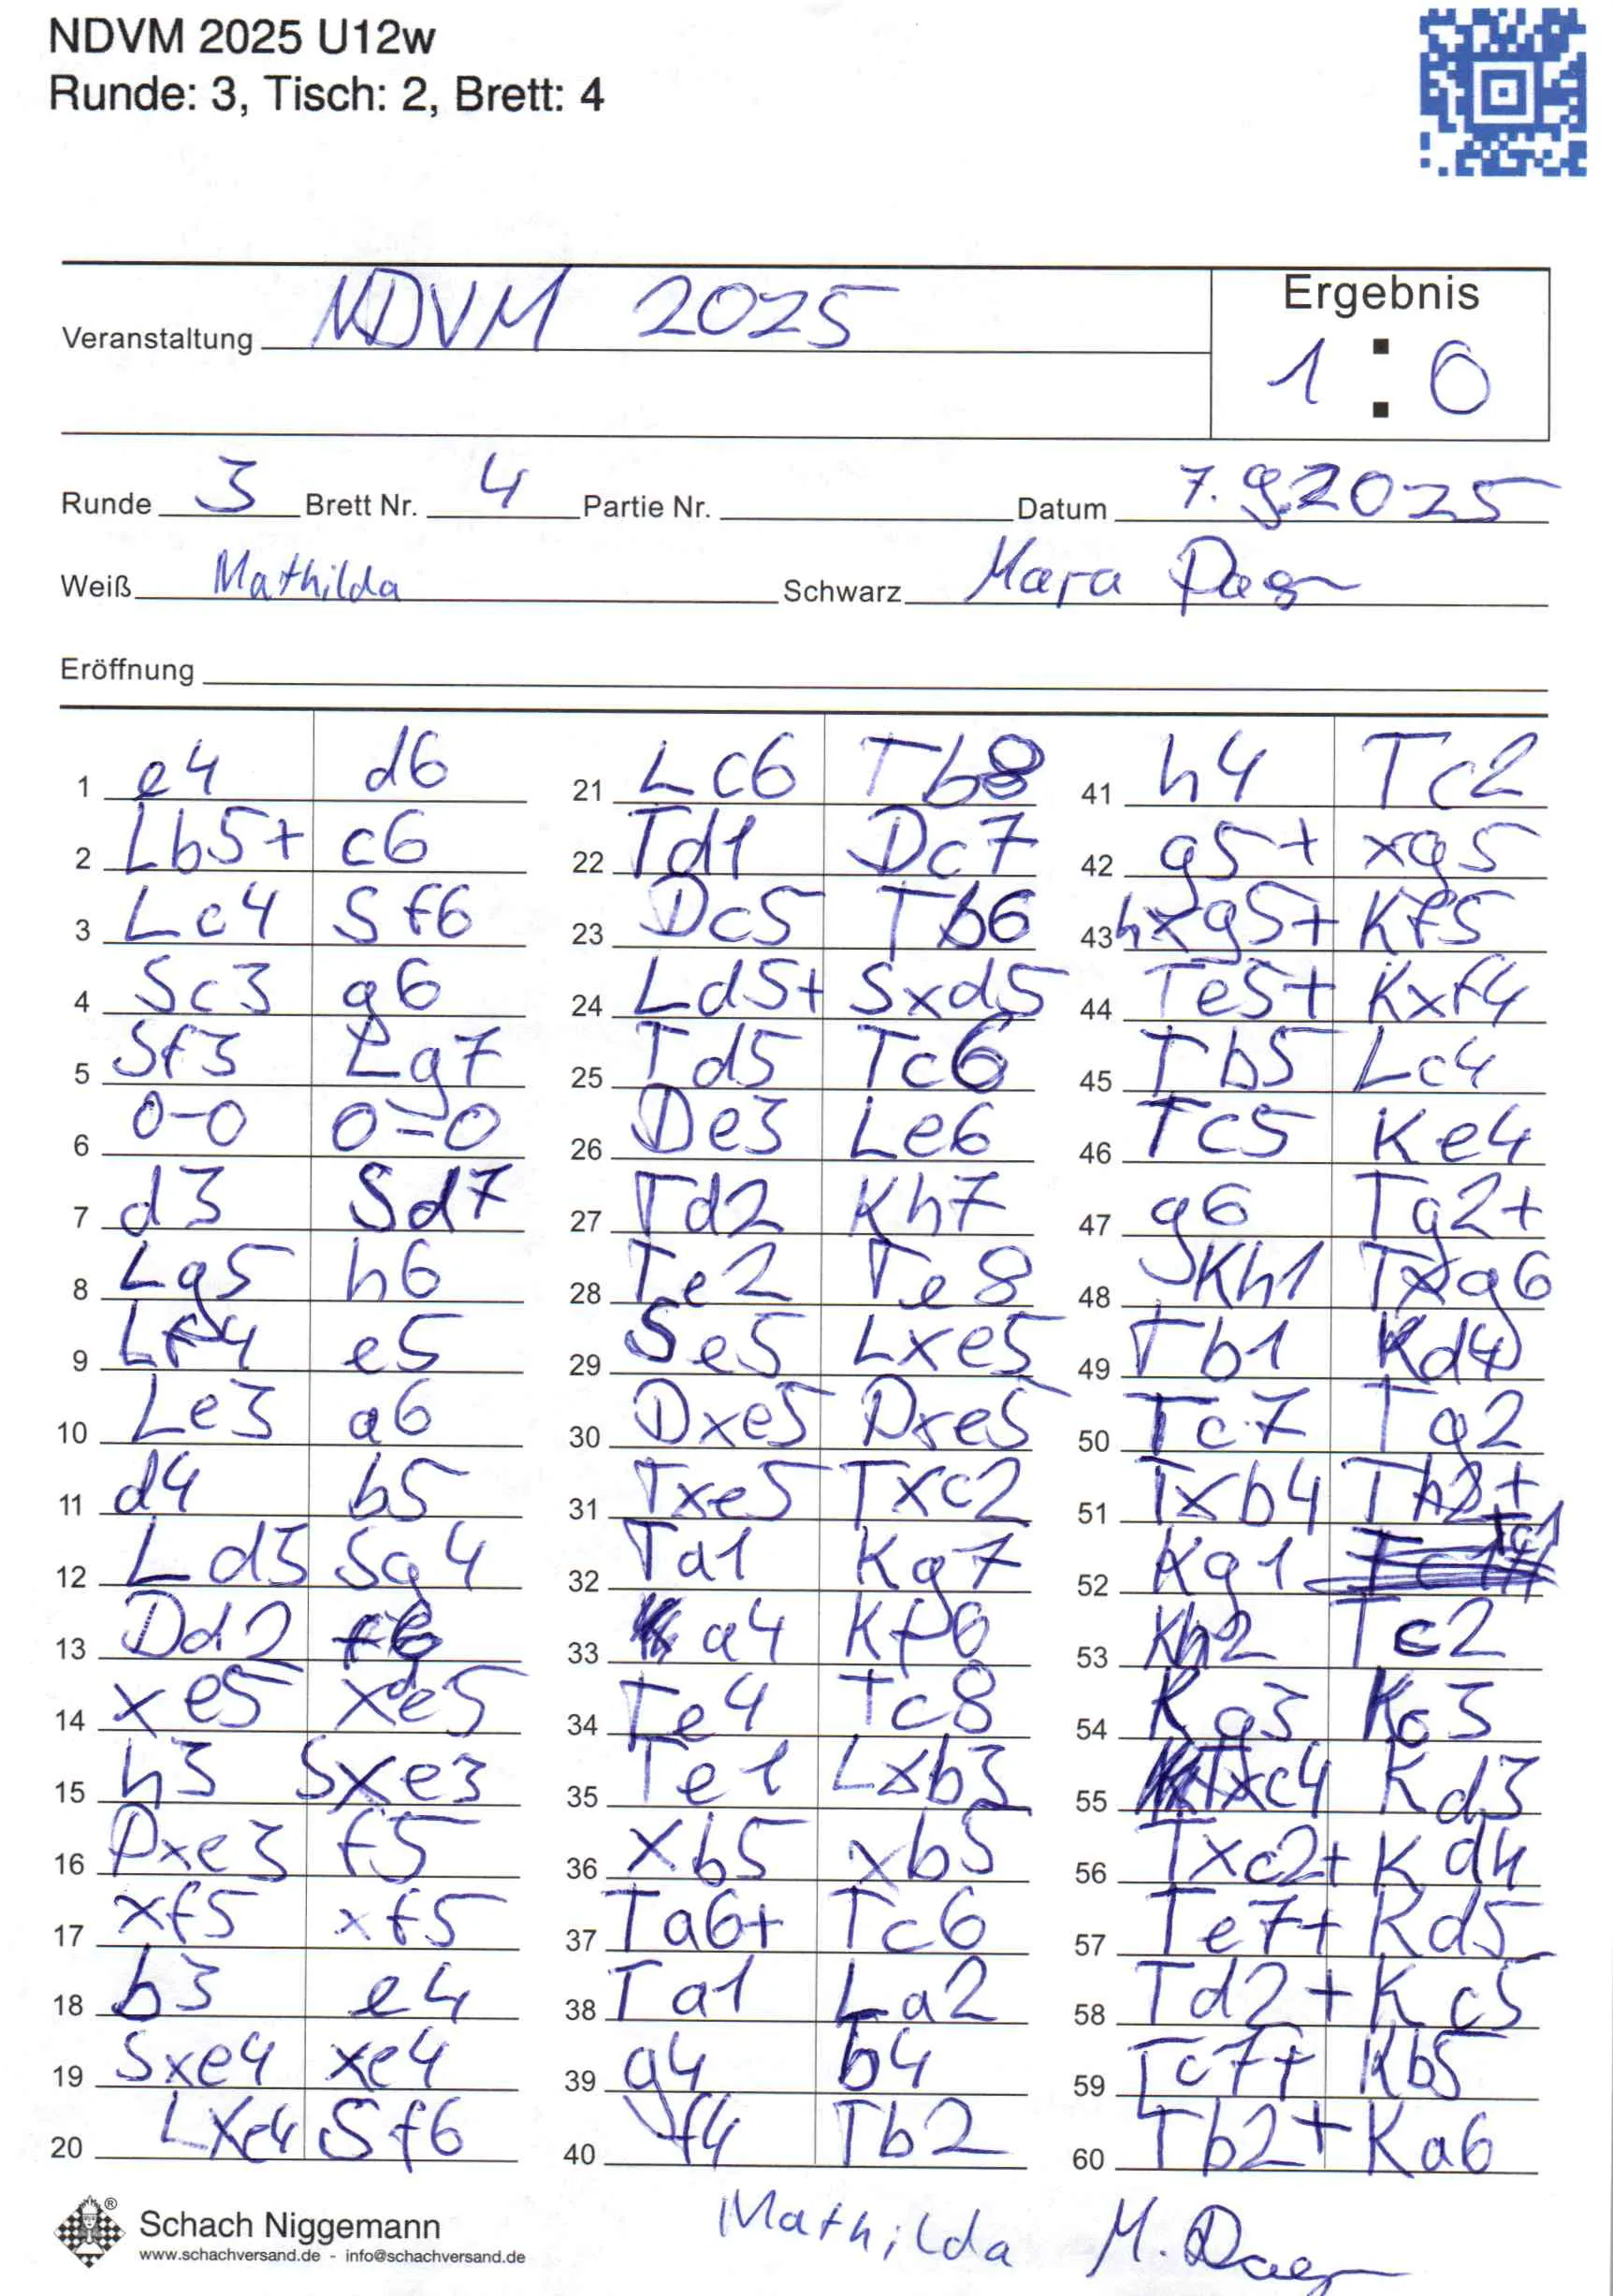 NDVM 2025 U12w
Runde: 3, Tisch: 2, Brett: 4
Ergebnis
Veranstaltung NDVM 2025
1 : 0
Runde 3 Brett Nr. 4 Partie Nr. Datum 7.9.2025
Weiß Mathilda Schwarz Mara
Eröffnung
1 e4 d6
2 Lb5+ c6
3 Lc4 Sf6
4 Sc3 g6
5 Sf3 Lg7
6 0-0 0-0
7 d3 Sd7
8 Lg5 h6
9 Lf4 e5
10 Le3 a6
11 d4 b5
12 Ld3 Sg4
13 Dd2 f6
14 xe5 xde5
15 h3 Sxe3
16 Dxe3 f5
17 xf5 xf5
18 b3 e4
19 Sxe4 xe4
20 Lxe4 Sf6
21 Lc6 Tb8
22 Td1 Dc7
23 Dc5 Tb6
24 Ld5+ Sxd5
25 Td5 Tc6
26 De3 Le6
27 Td2 Kh7
28 Te2 Te8
29 Se5 Lxe5
30 Dxe5 Dxe5
31 Txe5 Txc2
32 Ta1 Kg7
33 a4 Kf6
34 Te4 Tc8
35 Te1 Lxb3
36 xb5 xb5
37 Ta6+ Tc6
38 Ta1 La2
39 g4 b4
40 f4 Tb2
41 h4 Tc2
42 g5+ xg5
43 hxg5+ Kf5
44 Te5+ Kxf4
45 Tb5 Lc4
46 Tc5 Ke4
47 g6 Tg2+
48 Kh1 Txg6
49 Tb1 Kd4
50 Tc7 Tg2
51 Txb4 Th2+
52 Kg1
53 Kh2 Tc2
54 Kg3 Kc3
55 Txc4 Kd3
56 Txc2+ Kd4
57 Te7+ Kd5
58 Td2+ Kc5
59 Tc7+ Kb5
60 Tb2+ Ka6
Schach Niggemann
www.schachversand.de - info@schachversand.de
Mathilda M.